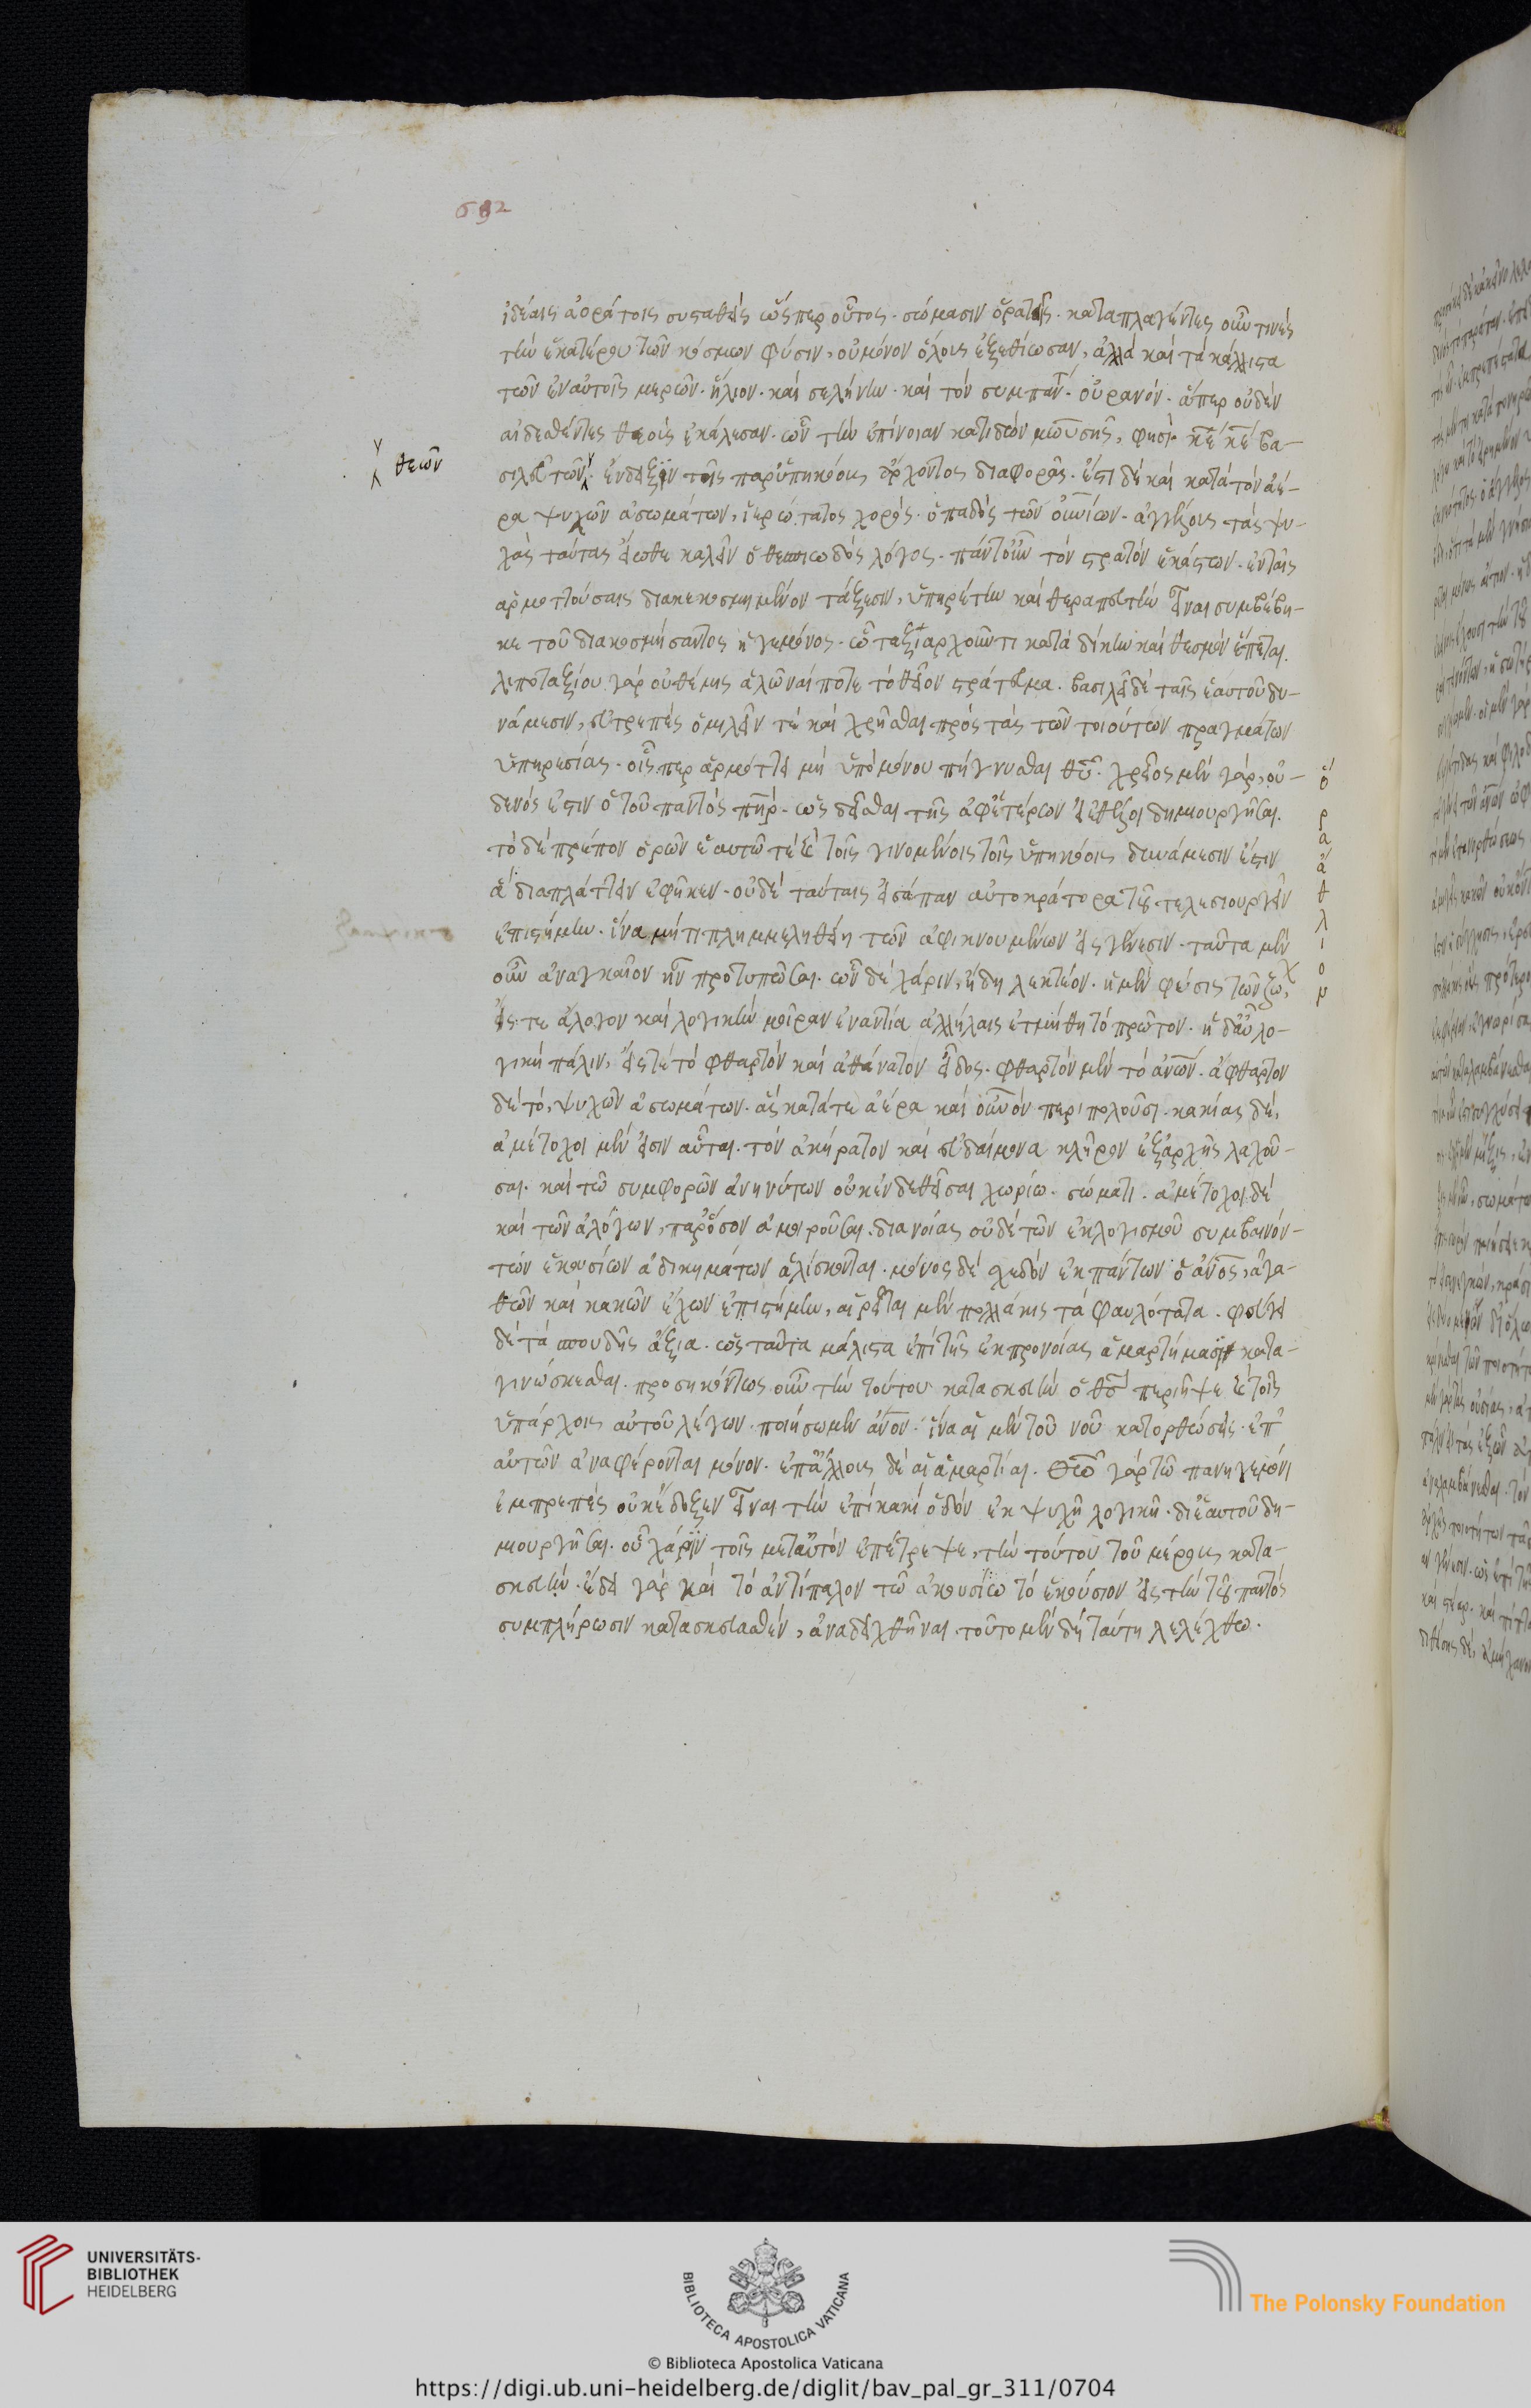 692
ἰδέαις ἀοράτοις συσταθεὶς ὥσπερ οὗτος· σώμασιν ὁρατοῖς· καταπλαγέντες οὖν τινὲς
τὴν ἑκατέρου τῶν κόσμων φύσιν, οὐ μόνον ὅλους ἐξεθείωσαν, ἀλλὰ καὶ τὰ κάλλιστα
τῶν ἐν αὐτοῖς μερῶν· ἥλιον· καὶ σελήνην· καὶ τὸν σύμπαντ· οὐρανόν· ἅπερ οὐδὲν
αἰδεσθέντες θεοὺς ἐκάλεσαν· ὧν τὴν ἐπίνοιαν κατιδὼν μωϋσῆς, φησὶ κ̅ε̅ κ̅ε̅ βα-
θεῶν
σιλεῦ τῶν· ἔνδειξιν τῆς παρ' ὑπηκόους ἄρχοντος διαφορᾶς· ἔστι δὲ καὶ κατὰ τὸν ἀέ-
ρα ψυχῶν ἀσωμάτων, ἱερώτατος χορός· ὀπαδὸς τῶν οὐνίων· ἀγγέλους τὰς ψυ-
χὰς ταύτας εἴωθε καλεῖν ὁ θεσπιωδὸς λόγος· πάντ' οὖν τὸν στρατὸν ἑκάστων· ἐν ταῖς
ἁρμοττούσαις διακεκοσμημένον τάξεσιν, ὑπηρέτην καὶ θεραπευτὴν εἶναι συμβέβη-
κε τοῦ διακοσμήσαντος ἡγεμόνος· ὧ ταξιαρχοῦντι κατὰ δίκην καὶ θεσμὸν ἕπεται.
λιποταξίου γὰρ οὐ θέμις ἁλῶναί ποτε τὸ θεῖον στράτευμα. βασιλεῖ δὲ ταῖς ἑαυτοῦ δυ-
νάμεσιν, εὐτρεπὲς ὁμιλεῖν τὲ καὶ χρῆσθαι πρὸς τὰς τῶν τοιούτων πραγμάτων
ὑπηρεσίας· οἷς περ ἁρμόττει μὴ ὑπὸ μόνου πήγνυσθαι θ̅υ̅· χρεῖος μὲν γὰρ, οὐ-
δενός ἐστιν ὁ τοῦ παντὸς π̅η̅ρ̅· ὡς δεῖσθαι τῆς ἀφ' ἑτέρων εἰ ἐθέλοι δημιουργῆσαι.
τὸ δὲ πρέπον ὁρῶν ἑαυτῶ τὲ καὶ τοῖς γινομένοις τοῖς ὑπηκόοις δυνάμεσιν ἔστιν
ἃ διαπλάττειν ἐφῆκεν· οὐδὲ ταύταις εἰσάπαν αὐτοκράτορα τοῦ τελεσιουργεῖν
ἐπιστήμην· ἵνα μή τι πλημμεληθείη τῶν ἀφικνουμένων εἰς γένεσιν· ταῦτα μὲν
οὖν ἀναγκαῖον ἦν προτυπῶσαι· ὧν δὲ χάριν, ἤδη λεκτέον· ἡ μὲν φύσις τῶν ζώ,
εἴς τε ἄλογον καὶ λογικὴν μοῖραν ἐναντία ἀλλήλαις ἐτμήθη τὸ πρῶτον· ἡ δ' αὖ λο-
γικὴ πάλιν, εἴς τε τὸ φθαρτὸν καὶ ἀθάνατον εἶδος· φθαρτὸν μὲν τὸ ἀνων· ἄφθαρτον
δὲ τὸ, ψυχῶν ἀσωμάτων· αἳ κατά τε ἀέρα καὶ οὐνὸν περιπολοῦσι· κακίας δὲ,
ἀμέτοχοι μέν εἰσιν αὗται. τὸν ἀκήρατον καὶ εὐδαίμονα κλῆρον ἐξ ἀρχῆς λαχοῦ-
σαι. καὶ τῶ συμφορῶν ἀνηνύτων οὐκ ἐνδεθεῖσαι χωρίω· σώματι· ἀμέτοχοι δὲ
καὶ τῶν ἀλόγων, παρ' ὅσον ἀμοιροῦσαι διανοίας οὐδὲ τῶν ἐκ λογισμοῦ συμβαινόν-
των ἑκουσίων ἀδικημάτων ἁλίσκονται· μόνος δὲ σχεδὸν ἐκ πάντων ὁ ἄνος, ἀγα-
θῶν καὶ κακῶν ἔχων ἐπιστήμην, αἱρεῖται μὲν πολλάκις τὰ φαυλότατα· φεύγει
δὲ τὰ σπουδῆς ἄξια· ὡς ταῦτα μάλιστα ἐπὶ τῆς ἐκ προνοίας ἁμαρτήμασι κατα-
γινώσκεσθαι. προσηκόντως οὖν τὴν τούτου κατασκευὴν ὁ θ̅ς̅ περιῆψε καὶ τοῖς
ὑπάρχοις αὐτοῦ λέγων· ποιήσωμεν ἄνον· ἵνα αἱ μὲν τοῦ νοῦ κατορθώσεις· ἐπ'
αὐτῶν ἀναφέρονται μόνον· ἐπ' ἄλλους δὲ αἱ ἁμαρτίαι. Θεῶ γὰρ τῶ πανηγεμόνι
ἐμπρεπὲς οὐκ ἔδοξεν εἶναι τὴν ἐπὶ κακὶ ὁδὸν ἐν ψυχῆ λογικῆ· δι' ἑαυτοῦ δη-
μιουργῆσαι. οὗ χάριν τοῖς μετ' αὐτὸν ἐπέτρεψε, τὴν τούτου τοῦ μέρους κατα-
σκευήν· ἔδει γὰρ καὶ τὸ ἀντίπαλον τῶ ἀκουσίω τὸ ἑκούσιον εἰς τὴν τοῦ παντὸς
συμπλήρωσιν κατασκευασθὲν, ἀναδειχθῆναι. τοῦτο μὲν δὴ ταύτη λελέχθω.
UNIVERSITÄTS-
BIBLIOTHEK
HEIDELBERG
BIBLIOTECA APOSTOLICA VATICANA
The Polonsky Foundation
© Biblioteca Apostolica Vaticana
https://digi.ub.uni-heidelberg.de/diglit/bav_pal_gr_311/0704